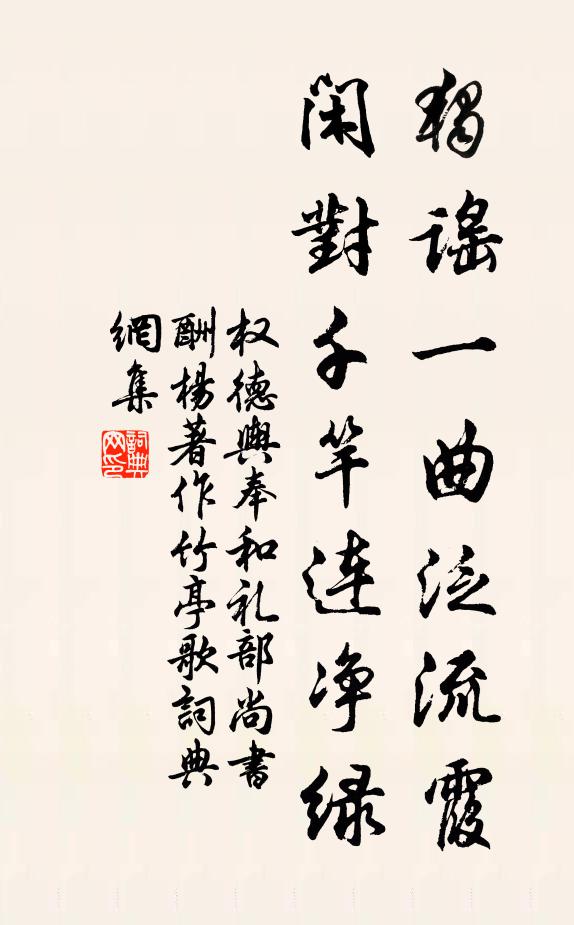 獨謠一曲泛流霞
閑對千竿連净緑
权德輿奉和礼部尚書
酬楊著作竹亭歌詞典
網集
詞典
网印